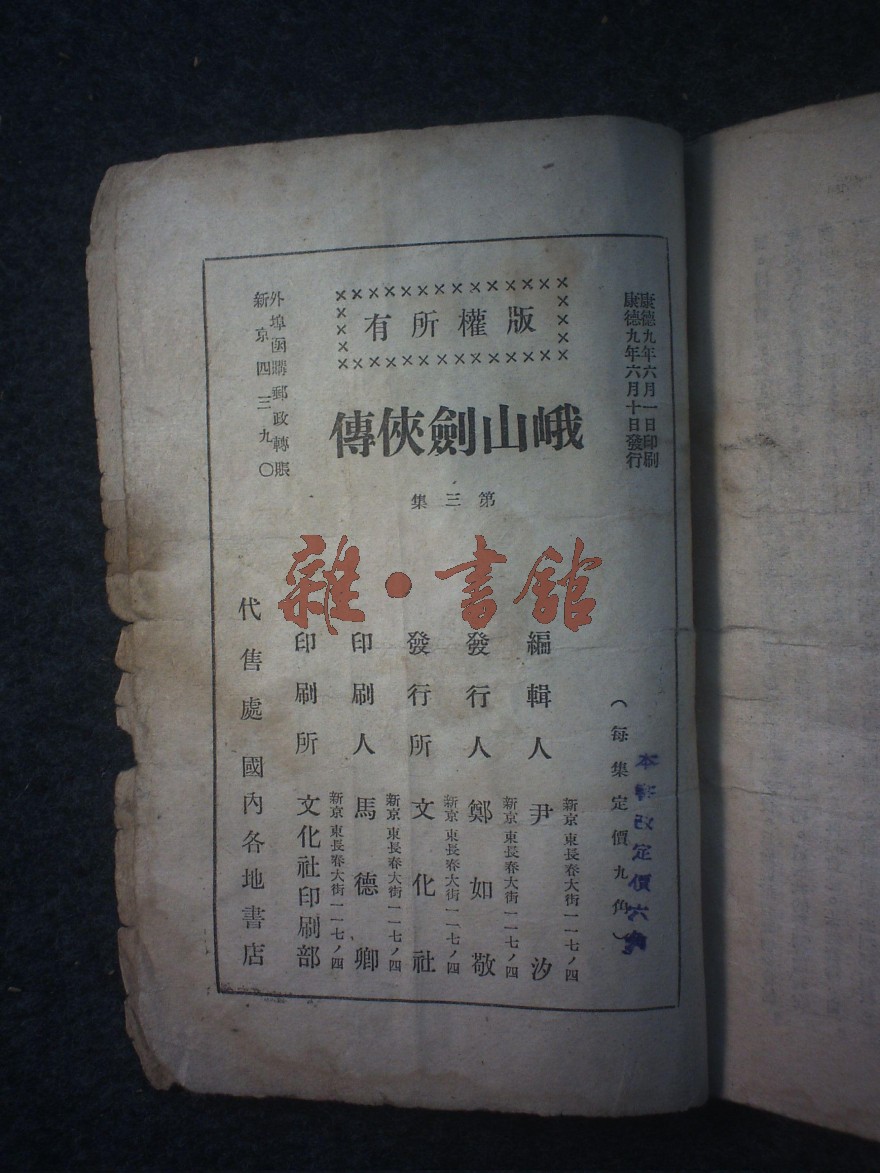 康德九年六月一日印刷
康德九年六月十日發行
版權所有
峨山劍俠傳
第三集
外埠函購郵政轉賬
新京四三九〇
雜·書館
(每集定價九角)
本集改定價六角
新京東長春大街一一七ノ四
編輯人 尹汐
新京東長春大街一一七ノ四
發行人 鄭如敬
新京東長春大街一一七ノ四
發行所 文化社
新京東長春大街一一七ノ四
印刷人 馬德卿
新京東長春大街一一七ノ四
印刷所 文化社印刷部
代售處 國內各地書店